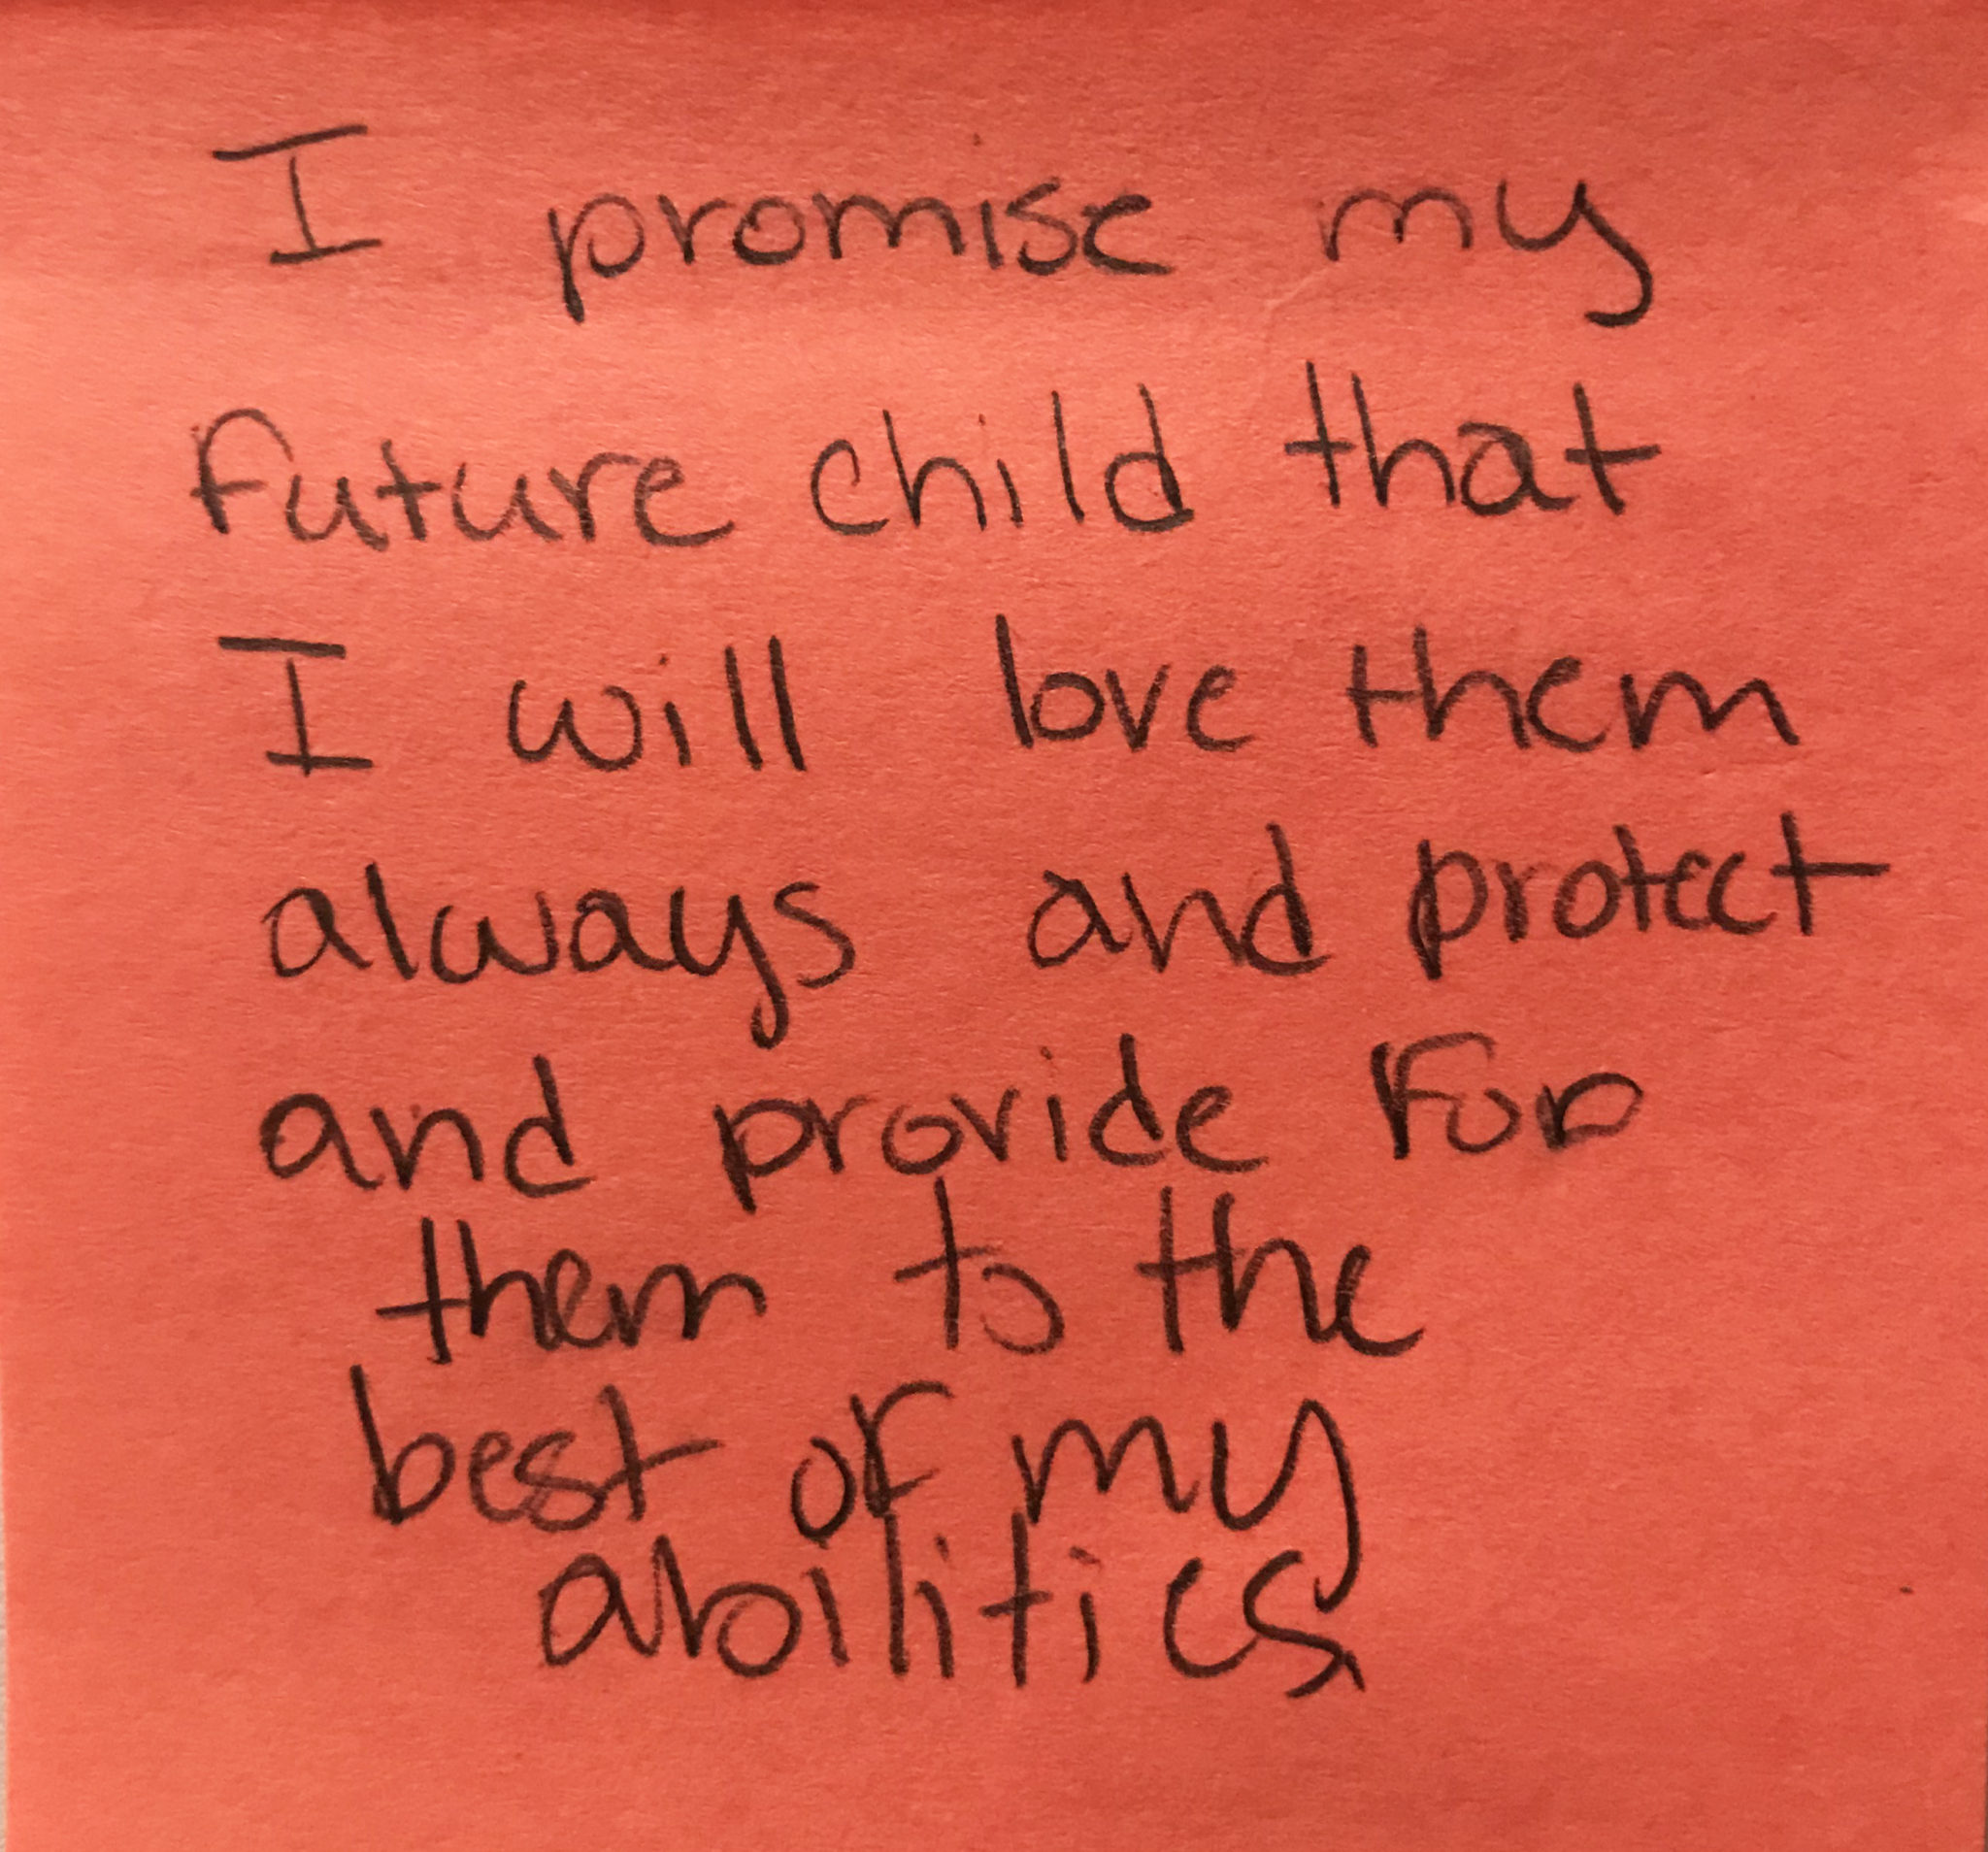 I promise my
future child that
I will love them
always and protect
and provide for
them to the
best of my
abilities